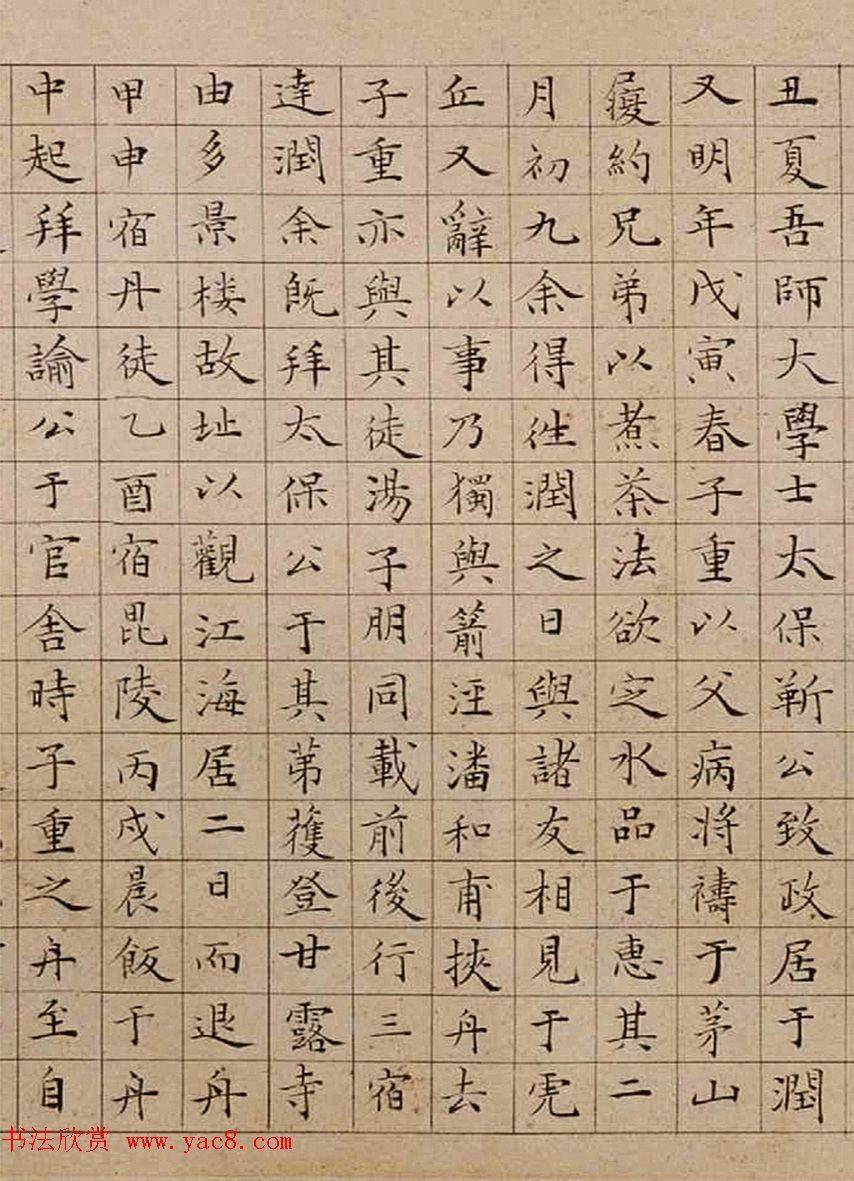 丑夏吾師大學士太保靳公致政居于潤
又明年戊寅春子重以父病將禱于茅山
履約兄弟以煮茶法欲定水品于惠其二
月初九余得往潤之日與諸友相見于虎
丘又辭以事乃獨與箭涇潘和甫挾舟去
子重亦與其徒湯子朋同載前後行三宿
達潤余既拜太保公于其第獲登甘露寺
由多景楼故址以觀江海居二日而退舟
甲申宿丹徒乙酉宿毘陵丙戌晨飯于舟
中起拜學諭公于官舍時子重之舟至自
书法欣赏 www.yac8.com